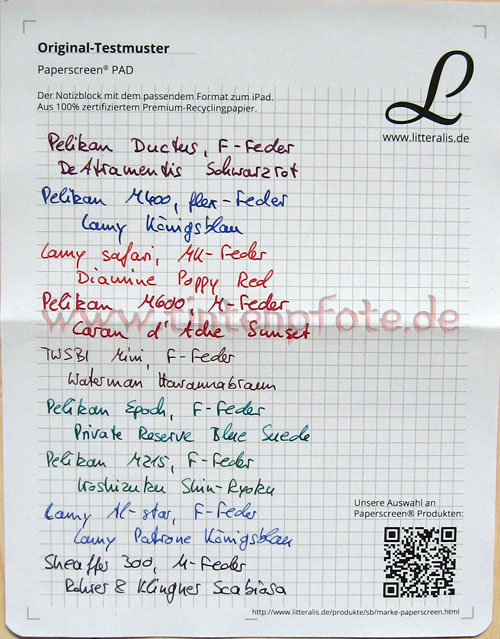 Original-Testmuster
Paperscreen® PAD
Der Notizblock mit dem passendem Format zum iPad.
Aus 100% zertifiziertem Premium-Recyclingpapier.
L
www.litteralis.de
Pelikan Ductus, F-Feder
DeAtramentis Schwarzrot
Pelikan M400, flex-Feder
Lamy Königsblau
Lamy Safari, MK-Feder
Diamine Poppy Red
Pelikan M600, M-Feder
www.tintenpfote.de
Caran d'Ache Sunset
TWSBI Mini, F-Feder
Waterman Havannabraun
Pelikan Epoch, F-Feder
Private Reserve Blue Suede
Pelikan M215, F-Feder
Iroshizuku Shin-Ryoku
Lamy Al-star, F-Feder
Lamy Patrone Königsblau
Sheaffer 300, M-Feder
Rohrer & Klingner Scabiosa
Unsere Auswahl an
Paperscreen® Produkten:
http://www.litteralis.de/produkte/sb/marke-paperscreen.html